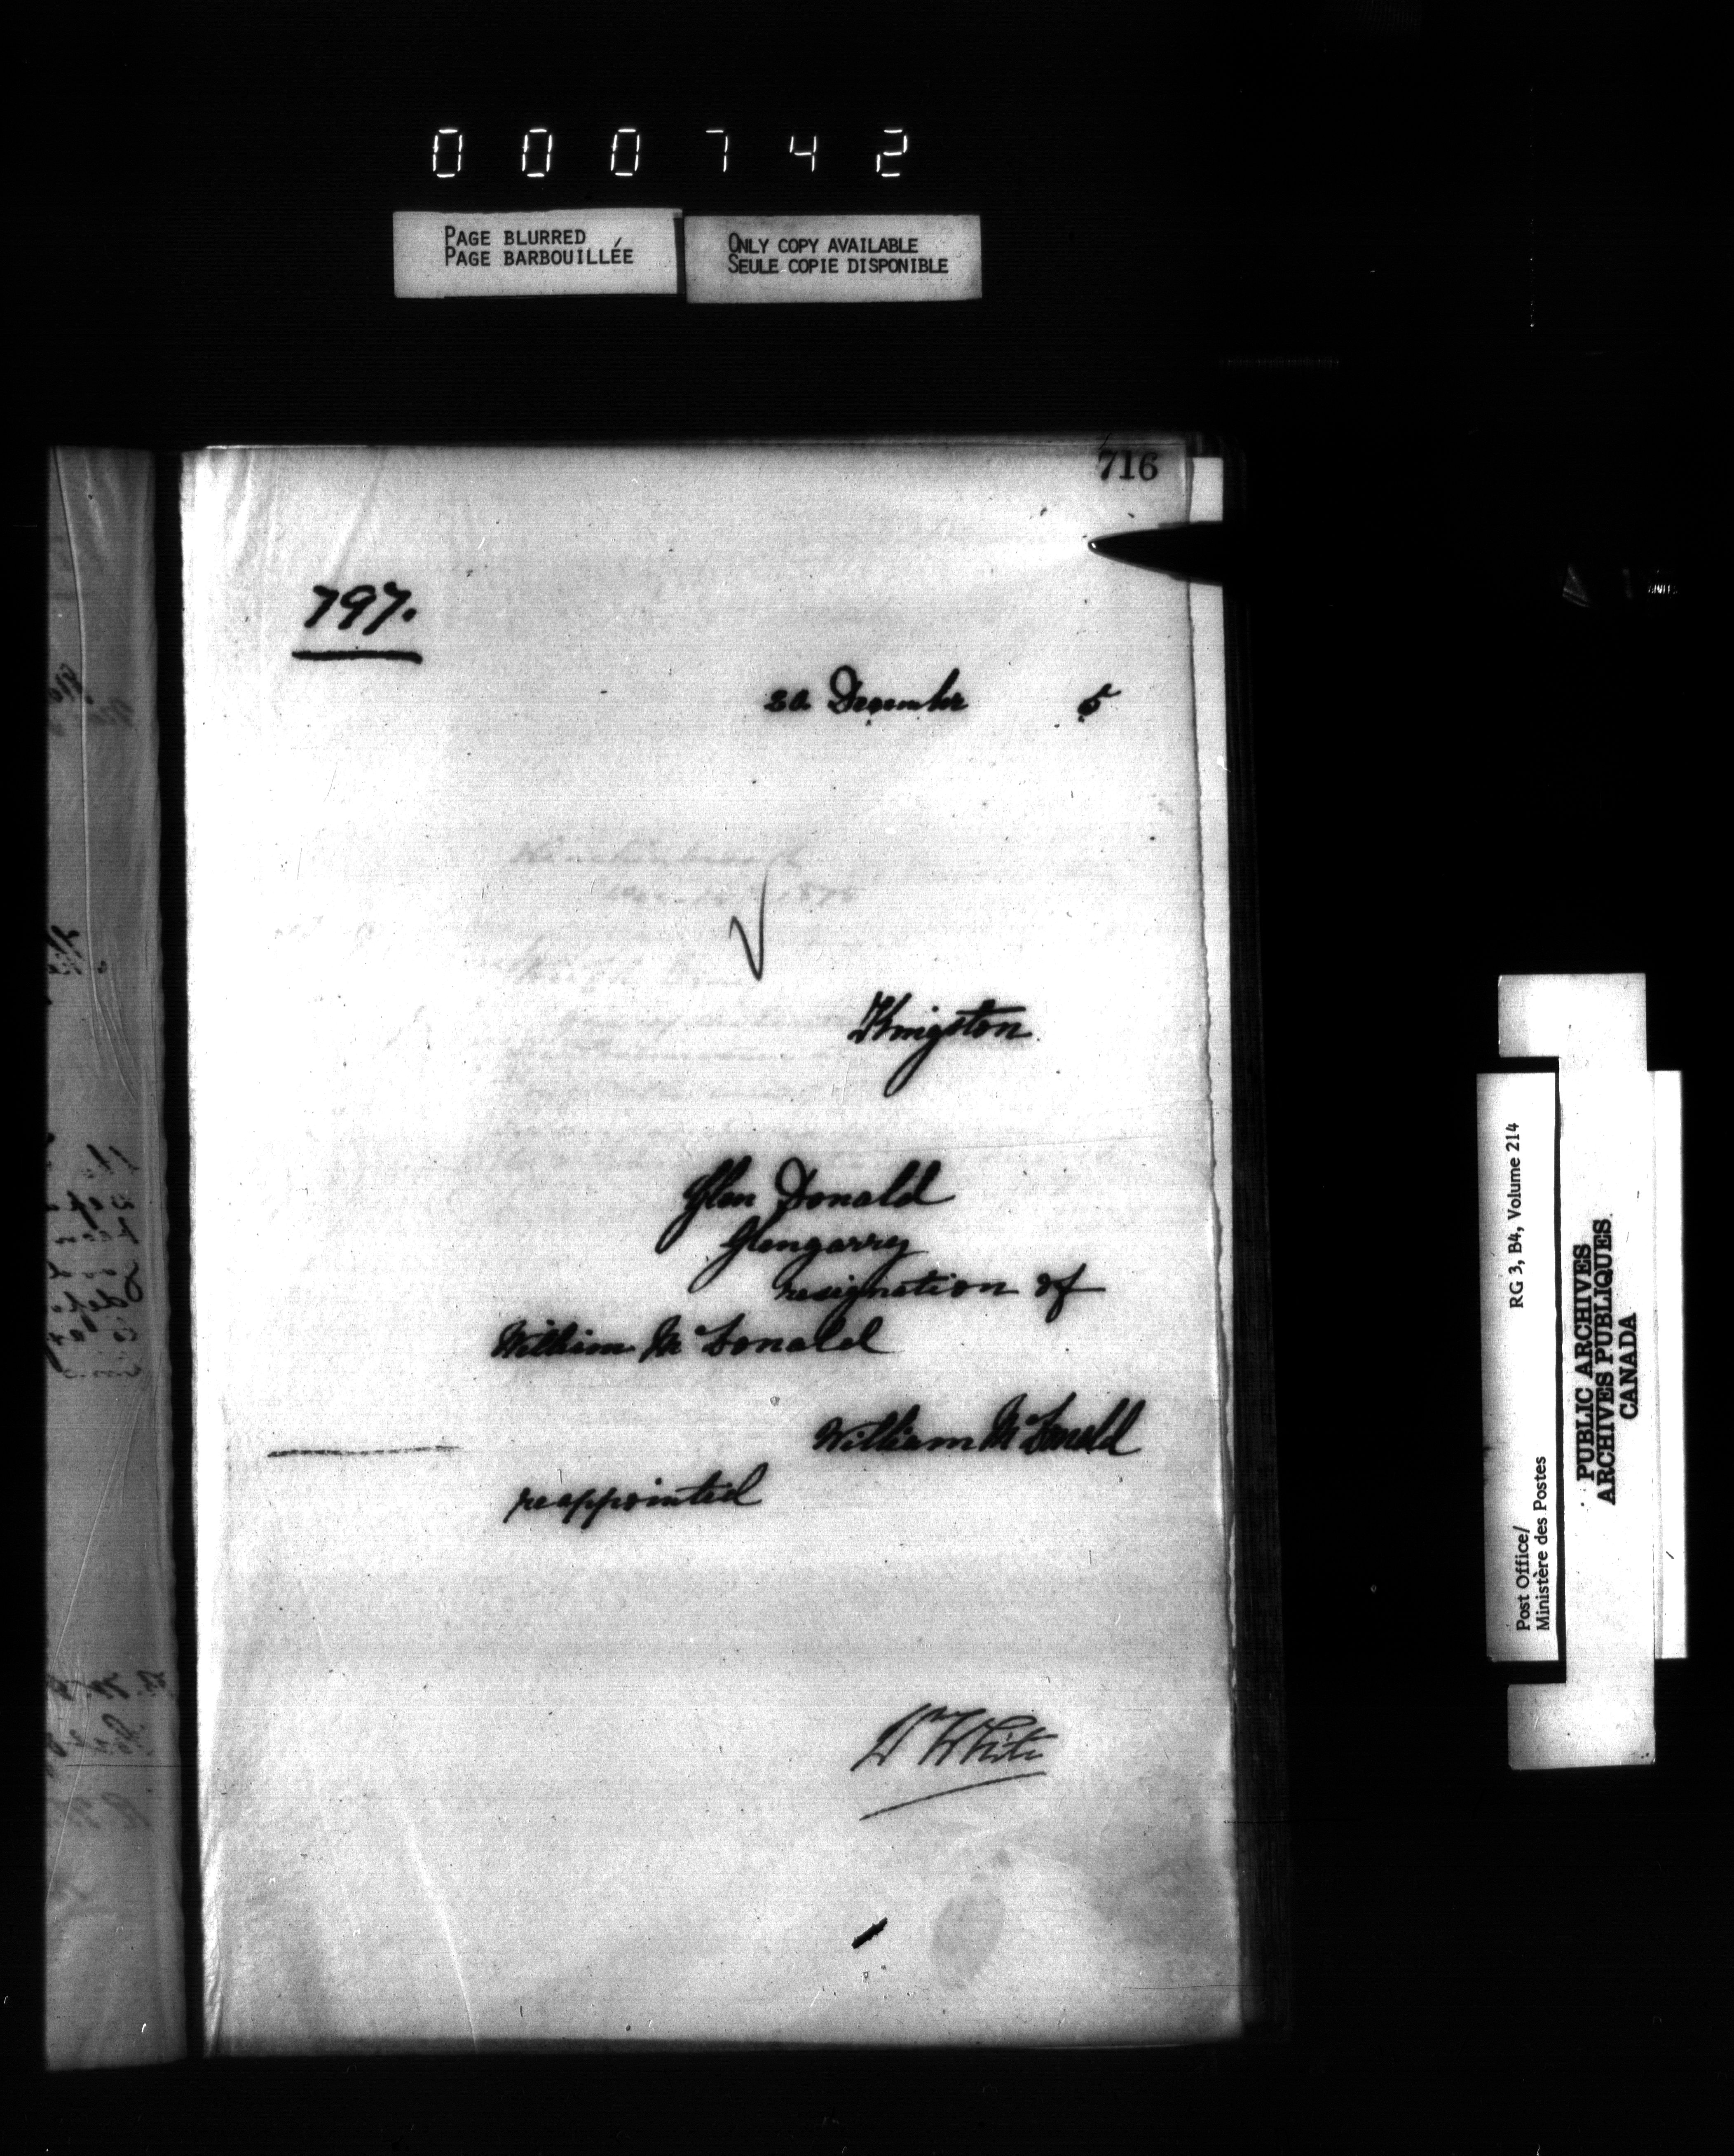 000742
PAGE BLURRED
PAGE BARBOUILLÉE
ONLY COPY AVAILABLE
SEULE COPIE DISPONIBLE
716
797.
20 December 5
Kingston
Glen Donald
Glengarry
resignation of
William McDonald
William McDonald
reappointed
Wm White
Post Office/
Ministère des Postes
RG 3, B4, Volume 214
PUBLIC ARCHIVES
ARCHIVES PUBLIQUES
CANADA